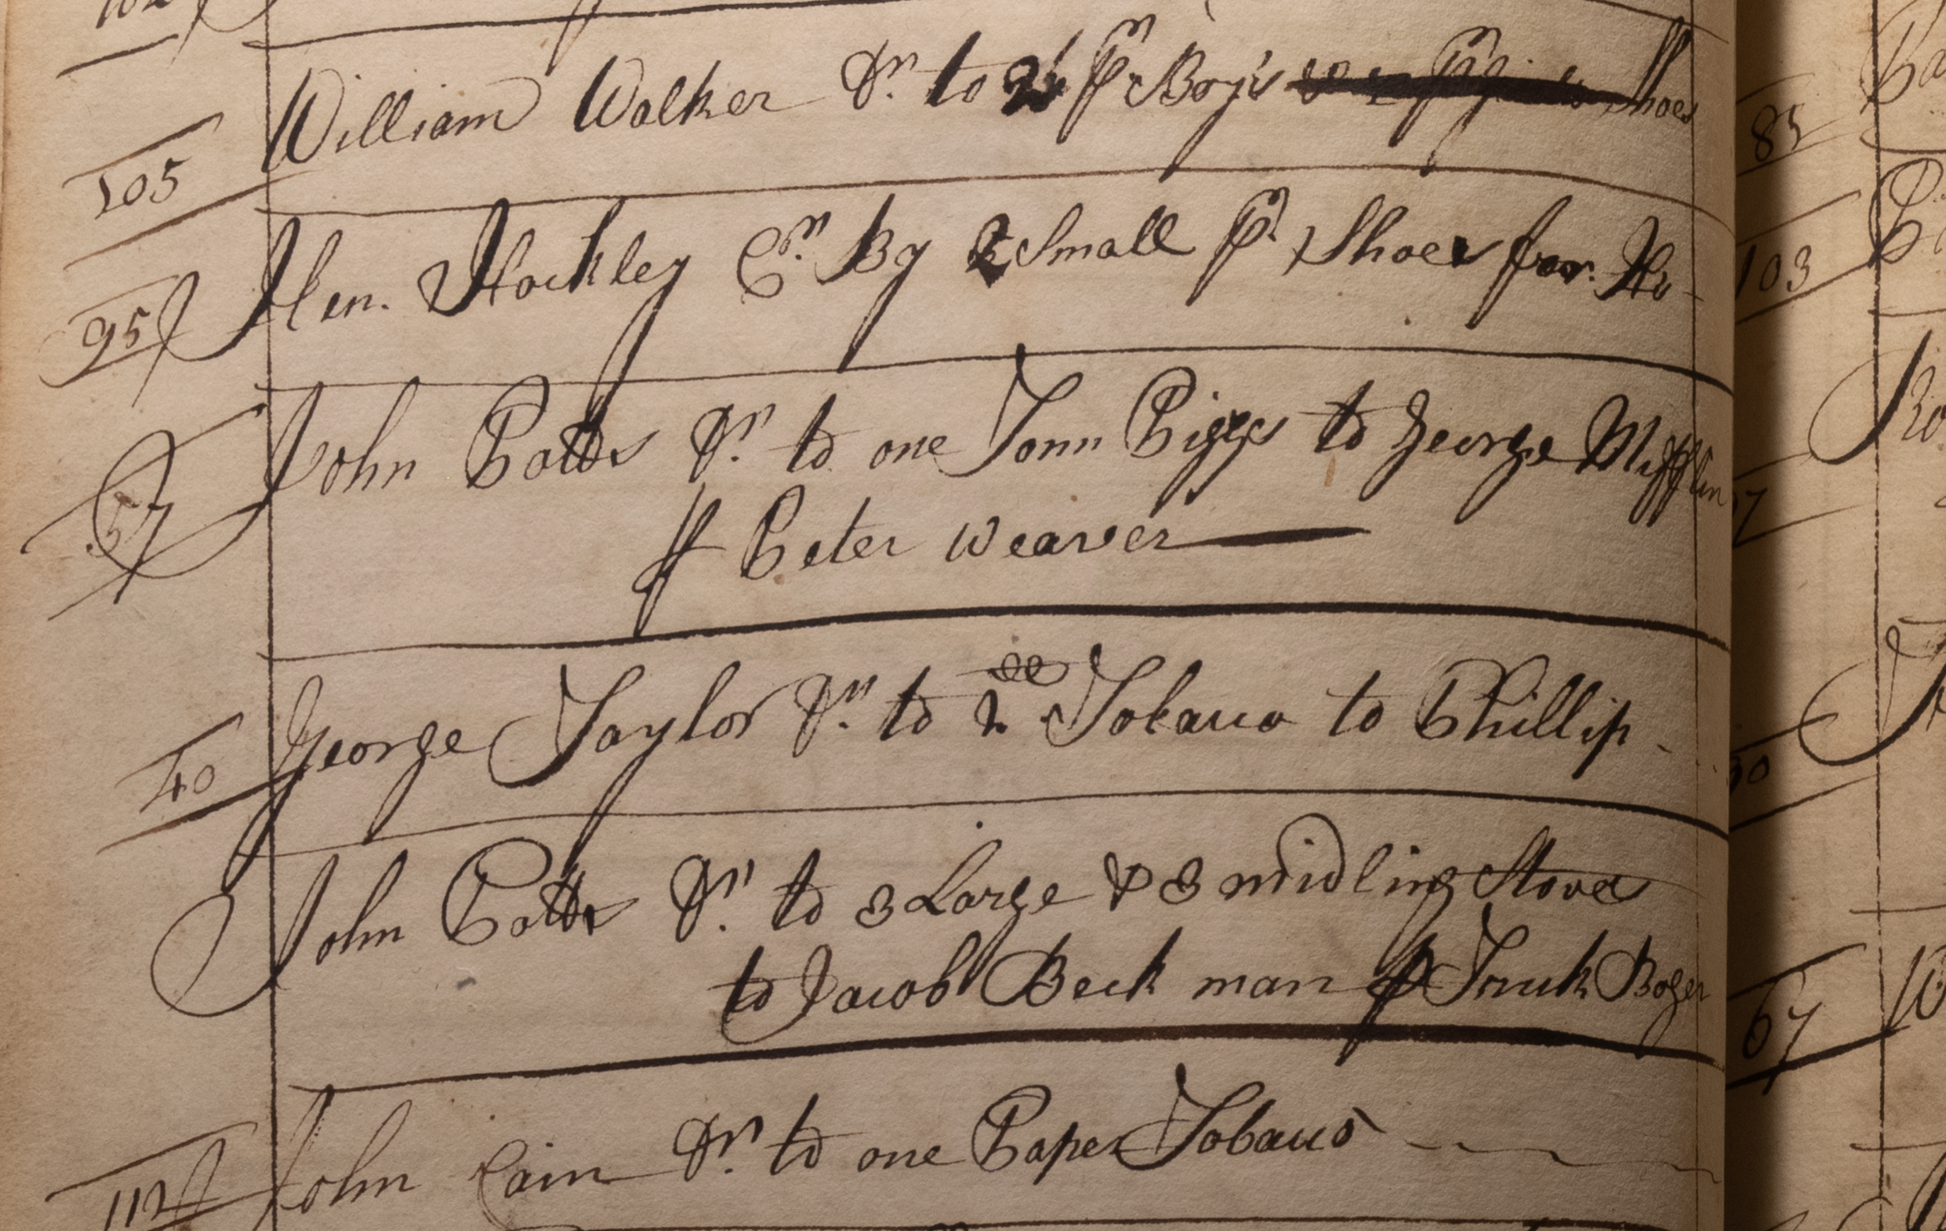 105 William Walker Dr. to 2 pr Boy's Shoes
95 Hen. Hockley Cr. By 2 Small pr Shoes for
57 John Potts Dr. to one Tonn Piggs to George Mifflin
⅌ Peter Weaver
40 George Taylor Dr. to 2 lb Tobacco to Phillip
John Potts Dr. to 3 Large & 3 midling Stoves
to Jacob Beck man ⅌ Boger
112 John Cain Dr. to one Paper Tobacco
85
103
67